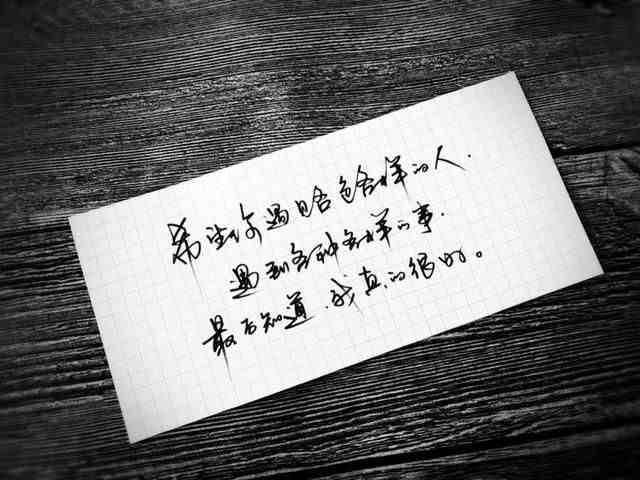 希望你遇见各色各样的人，
遇到各种各样的事，
最后知道，我真的很好。